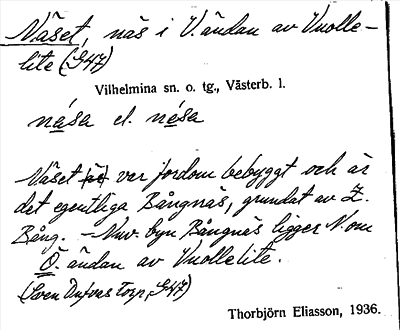 Näset, näs i V. ändan av Vuolle-
lite (S47)
Vilhelmina sn. o. tg., Västerb. l.
nása el. nésa
Näset var fordom bebyggt och är
det egentliga Bångnäs, grundat av Z.
Bång. – Nuv. byn Bångnäs ligger N. om
Ö. ändan av Vuollelite.
(Sven Dufvas Torp, S47)
Thorbjörn Eliasson, 1936.